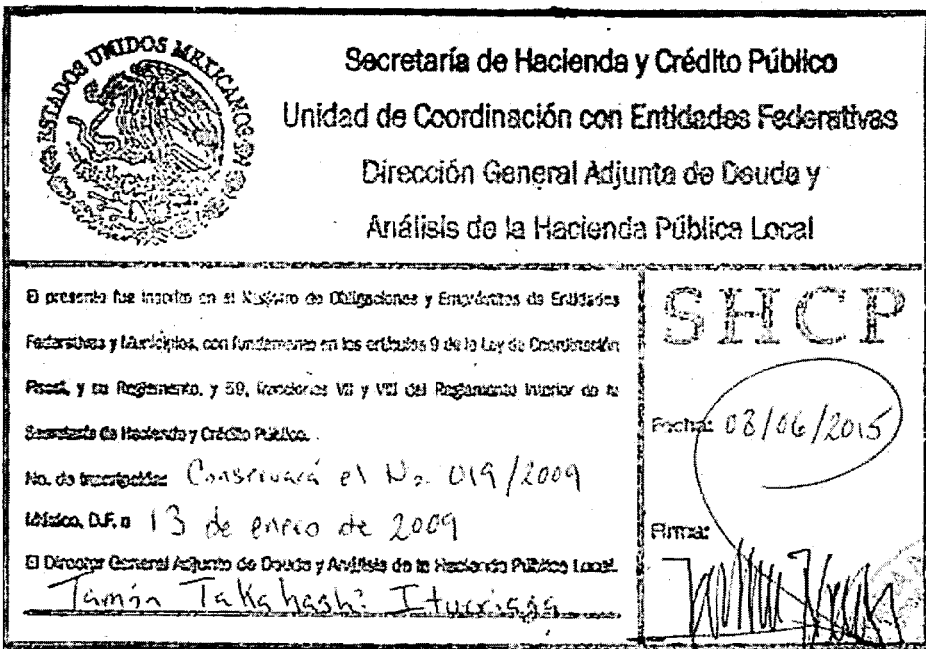 ESTADOS UNIDOS MEXICANOS
Secretaría de Hacienda y Crédito Público
Unidad de Coordinación con Entidades Federativas
Dirección General Adjunta de Deuda y
Análisis de la Hacienda Pública Local
El presente fue inscrito en el Registro de Obligaciones y Empréstitos de Entidades
Federativas y Municipios, con fundamento en los artículos 9 de la Ley de Coordinación
Fiscal, y su Reglamento, y 59, fracciones VII y VIII del Reglamento Interior de la
Secretaría de Hacienda y Crédito Público.
No. de Inscripción: Conservará el No. 019/2009
México, D.F. a 13 de enero de 2009
El Director General Adjunto de Deuda y Análisis de la Hacienda Pública Local.
Takahashi
SHCP
Fecha: 08/06/2015
Firma: